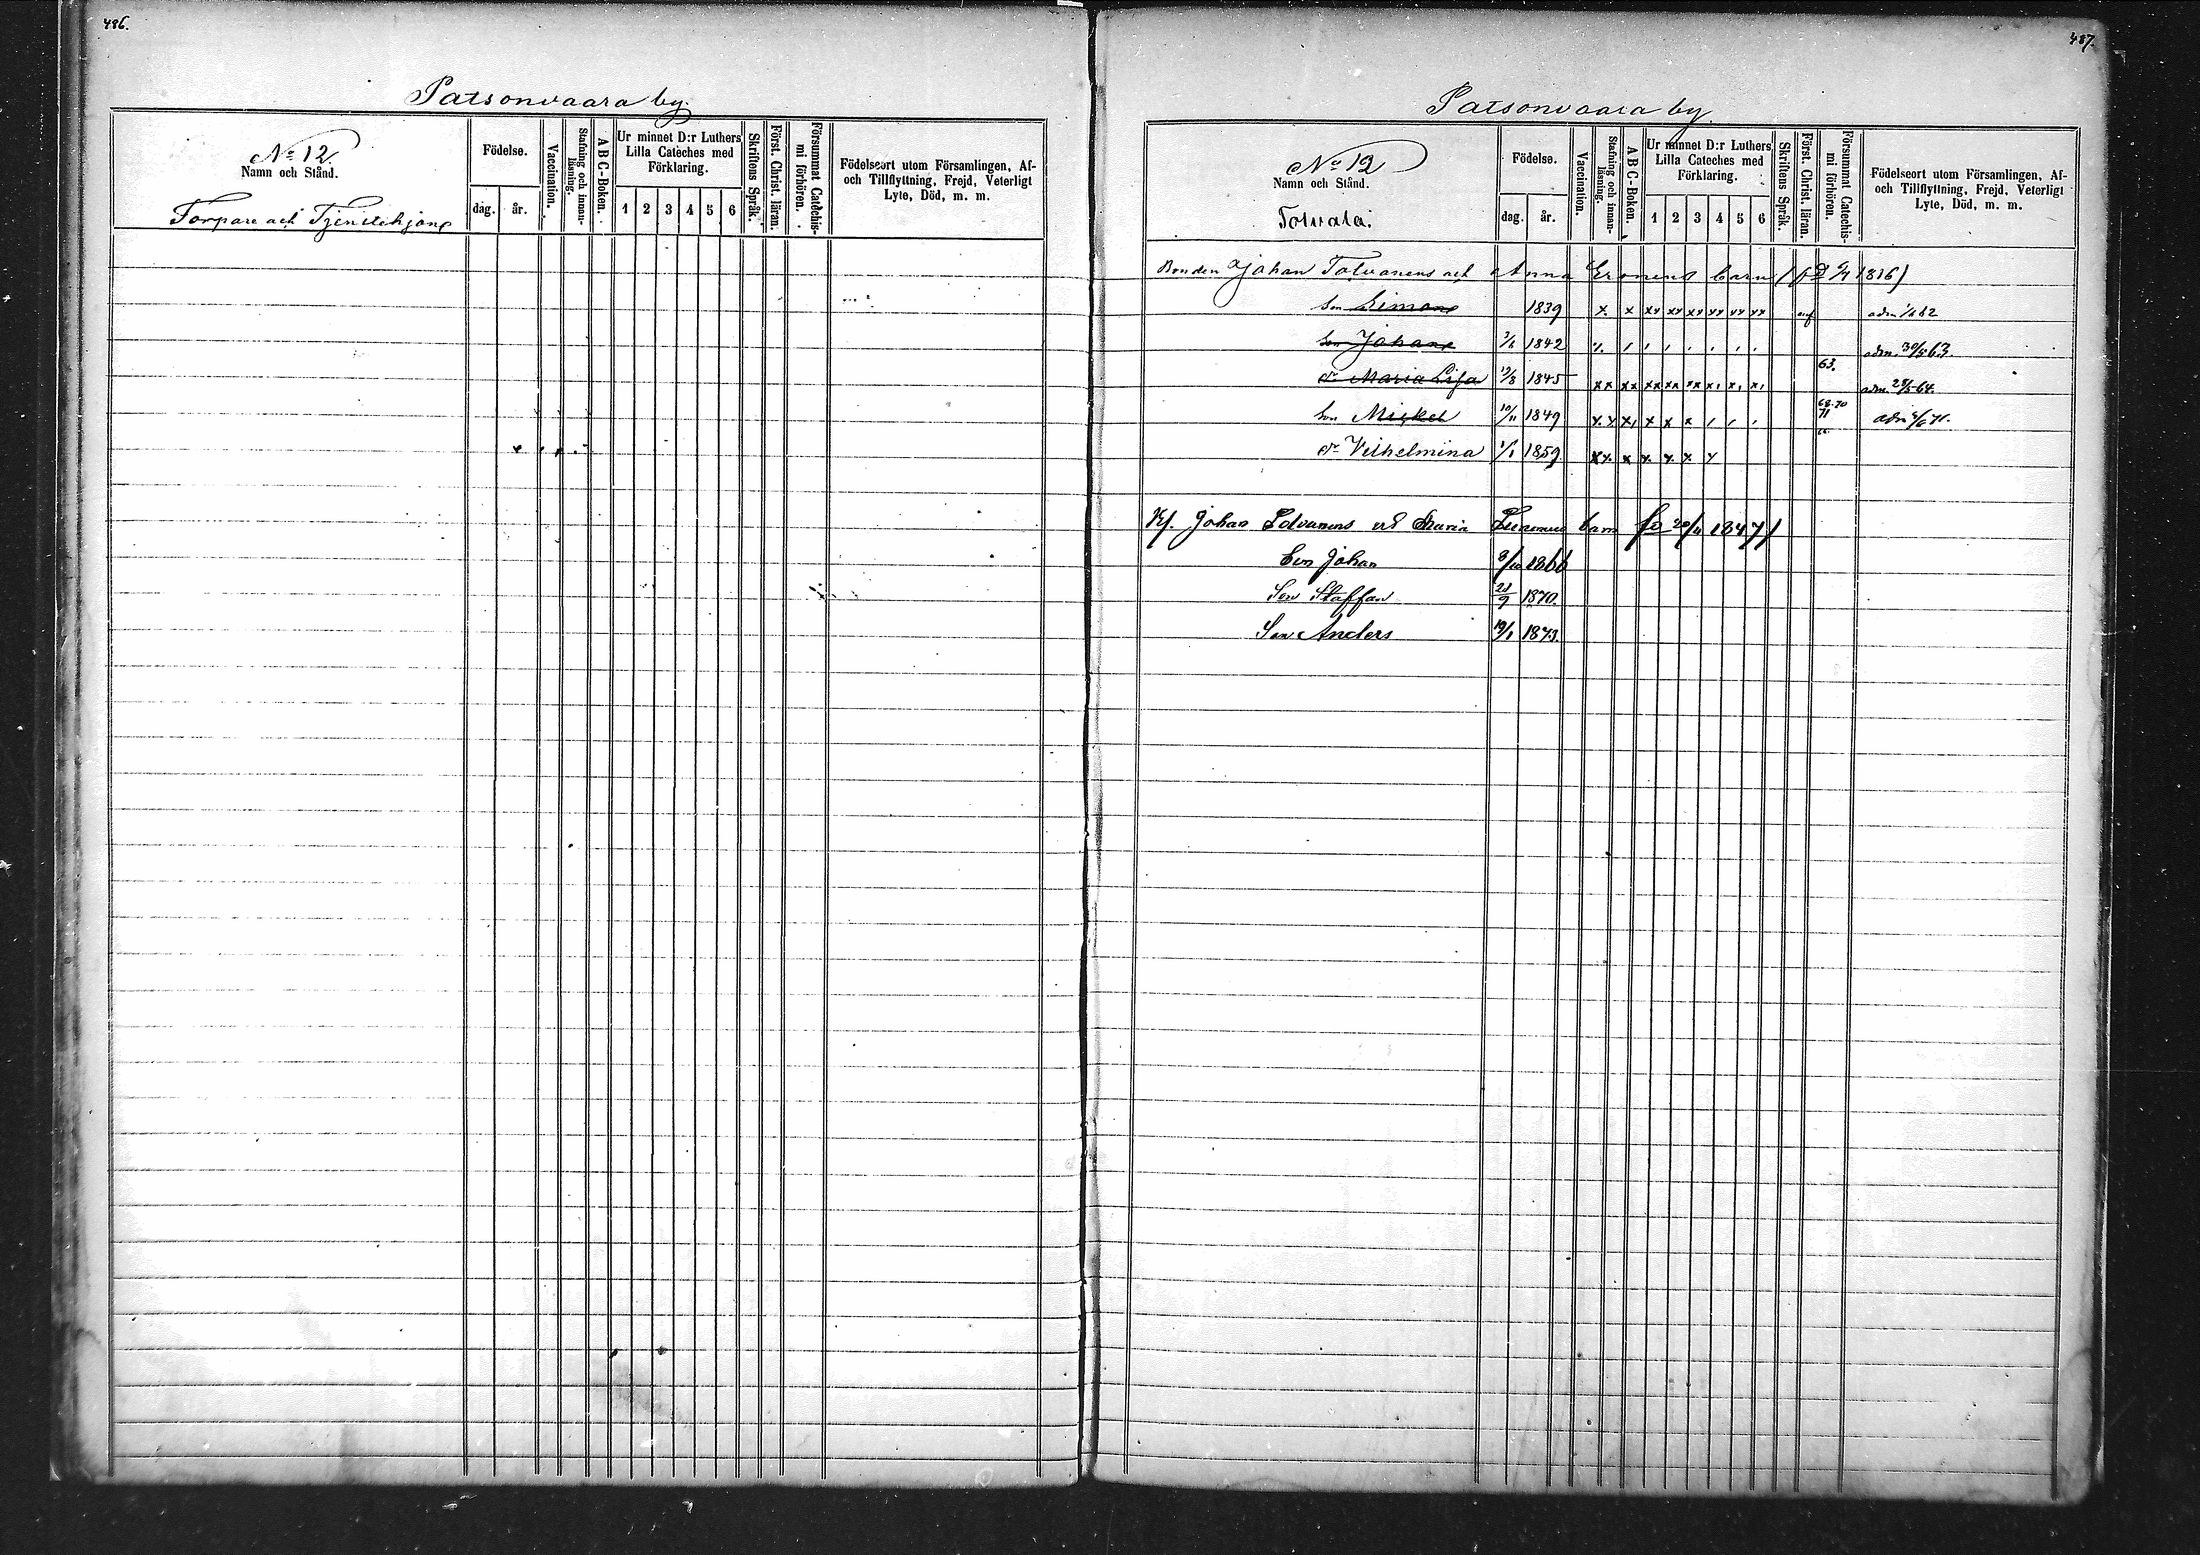 486.
Patsonvaara by.
No 12.
Namn och Stånd.
Torpare och Tjenstehjon
Födelse.
dag. år.
Vaccination.
Stafning och innan-läsning.
A B C-Boken.
Ur minnet D:r Luthers
Lilla Cateches med
Förklaring.
1 2 3 4 5 6
Skriftens Språk.
Först. Christ. läran.
Försummat Catechis-mi förhören.
Födelseort utom Församlingen, Af-
och Tillflyttning, Frejd, Veterligt
Lyte, Död, m. m.
487.
Patsonvaara by.
No 12
Namn och Stånd.
Tolvala.
Födelse.
dag. år.
Vaccination.
Stafning och innan-läsning.
A B C-Boken.
Ur minnet D:r Luthers
Lilla Cateches med
Förklaring.
1 2 3 4 5 6
Skriftens Språk.
Först. Christ. läran.
Försummat Catechis-mi förhören.
Födelseort utom Församlingen, Af-
och Tillflyttning, Frejd, Veterligt
Lyte, Död, m. m.
Bonden Johan Tolvanens och Anna Eronens barn 1816)
Son Simon 1839 x x xx xx xx xx xx xx adm
Son Johan 1842 adm. 30/5 63.
63.
dr Maria Lisa 12/8 1845 xx xx xx xx xx x, x, x, adm. 64.
Son Mickel 10/11 1849 x x x, x x x , , , 68-70 71 adm 71.
dr Vilhelmina 1/1 1859 xx. x x. x. x. x
Johan Tolvanens och Maria barn 20/11 1847)
Son Johan 8/10 1866
Son Staffan 1870.
Son Anders 19/1 1873.